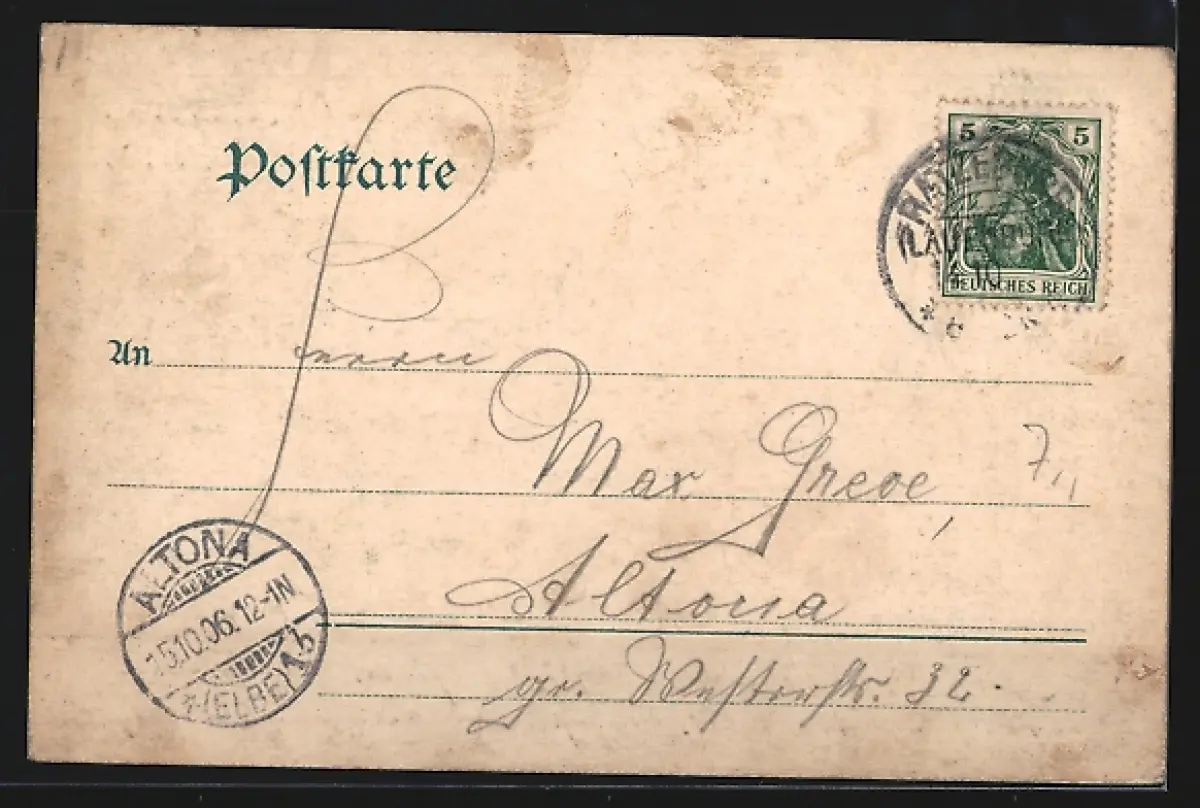 Postkarte
5 5
DEUTSCHES REICH
An Herrn
Max Greve
7
Altona
gr. Westerstr. 32.
ALTONA
15.10.06. 12-1N.
*(ELBE) 1 b